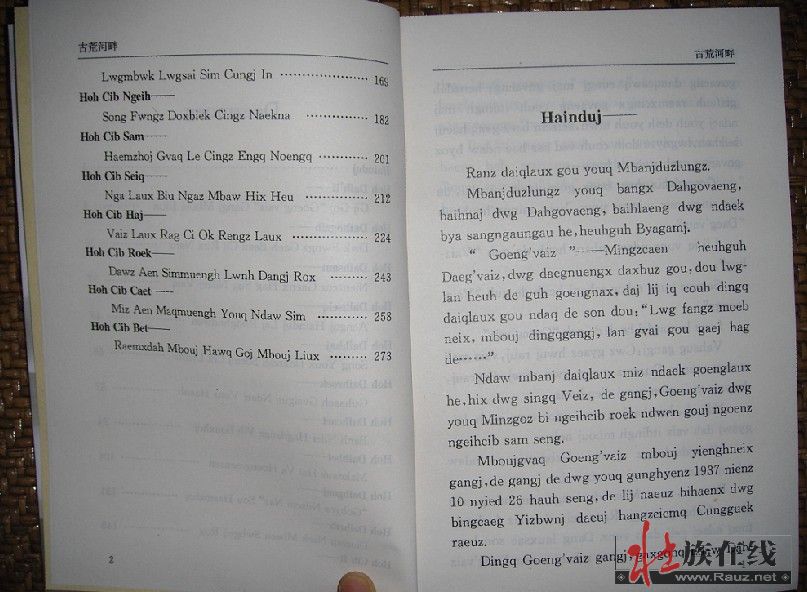 古荒河畔
Lwgmbwk Lwgsai Sim Cungj In ⋯⋯⋯⋯⋯ 169
Hoh Cib Ngeih——
Song Fwngz Doxbiek Cingz Naekna ⋯⋯⋯⋯ 182
Hoh Cib Sam——
Haemzhoj Gvaq Le Cingz Engq Noengq ⋯⋯⋯ 201
Hoh Cib Seiq——
Nga Laux Biu Ngaz Mbaw Hix Heu ⋯⋯⋯⋯ 212
Hoh Cib Haj——
Vaiz Laux Rag Ci Ok Rengz Laux ⋯⋯⋯⋯ 224
Hoh Cib Roek——
Dawz Aen Simmuengh Lwnh Dangj Rox ⋯⋯⋯ 243
Hoh Cib Caet——
Miz Aen Maqmuengh Youq Ndaw Sim ⋯⋯⋯ 258
Hoh Cib Bet——
Raemxdah Mbouj Hawq Goj Mbouj Liux ⋯⋯⋯ 273
2
古荒河畔
Hainduj——
Ranz daiqlaux gou youq Mbanjduzlungz.
Mbanjduzlungz youq bangx Dahgovaeng,
haihnaj dwg Dahgovaeng, baihlaeng dwg ndaek
bya sangngaungau he, heuhguh Byaganj.
“ Goeng'vaiz ”——Mingzcaen heuhguh
Daeg'vaiz, dwg daegnuengx daxhuz gou, dou lwg-
lan heuh de guh goengnax, daj lij iq couh dingq
daiqlaux gou ndaq de son dou: “Lwg fangz moeb
neix, mbouj dingqgangj, lan gvai gou gaej hag
de⋯⋯”
Ndaw mbanj daiqlaux miz ndaek goenglaux
he, hix dwg singq Veiz, de gangj, Goeng'vaiz dwg
youq Minzgoz bi ngeihcib roek ndwen gouj ngoenz
ngeihcib sam seng.
Mboujgvaq Goeng'vaiz mbouj yienghneix
gangj, de gangj de dwg youq gunghyenz 1937 nienz
10 nyied 26 hauh seng, de lij naeuz bihaenx dwg
bingcaeg Yizbwnj dacuj hangzcicmq Cungguek
raeuz.
Dingq Goeng'vaiz gangj,
壮族在线
www.Rauz.net